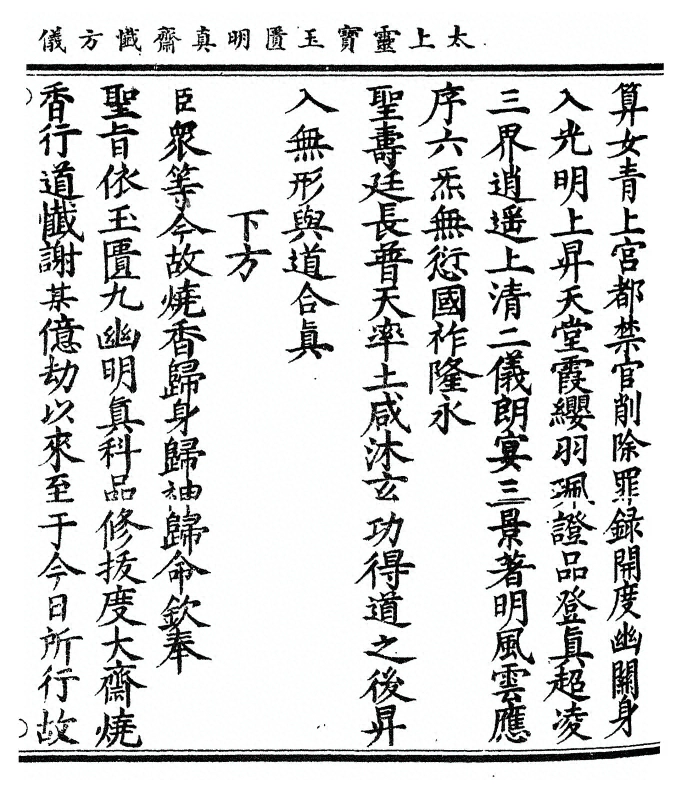 太上靈寶玉匱明真齋懺方儀
算女青上宮都禁官削除罪録開度幽關身
入光明上昇天堂霞纓羽珮證品登眞超凌
三界逍遥上清二儀朗宴三景著明風雲應
序六炁無愆國祚隆永
聖壽廷長普天率土咸沐玄功得道之後昇
入無形與道合眞
下方
臣衆等今故燒香歸身歸神歸命欽奉
聖旨依玉匱九幽明眞科品修拔度大齋燒
香行道懺謝某億劫以來至于今日所行故